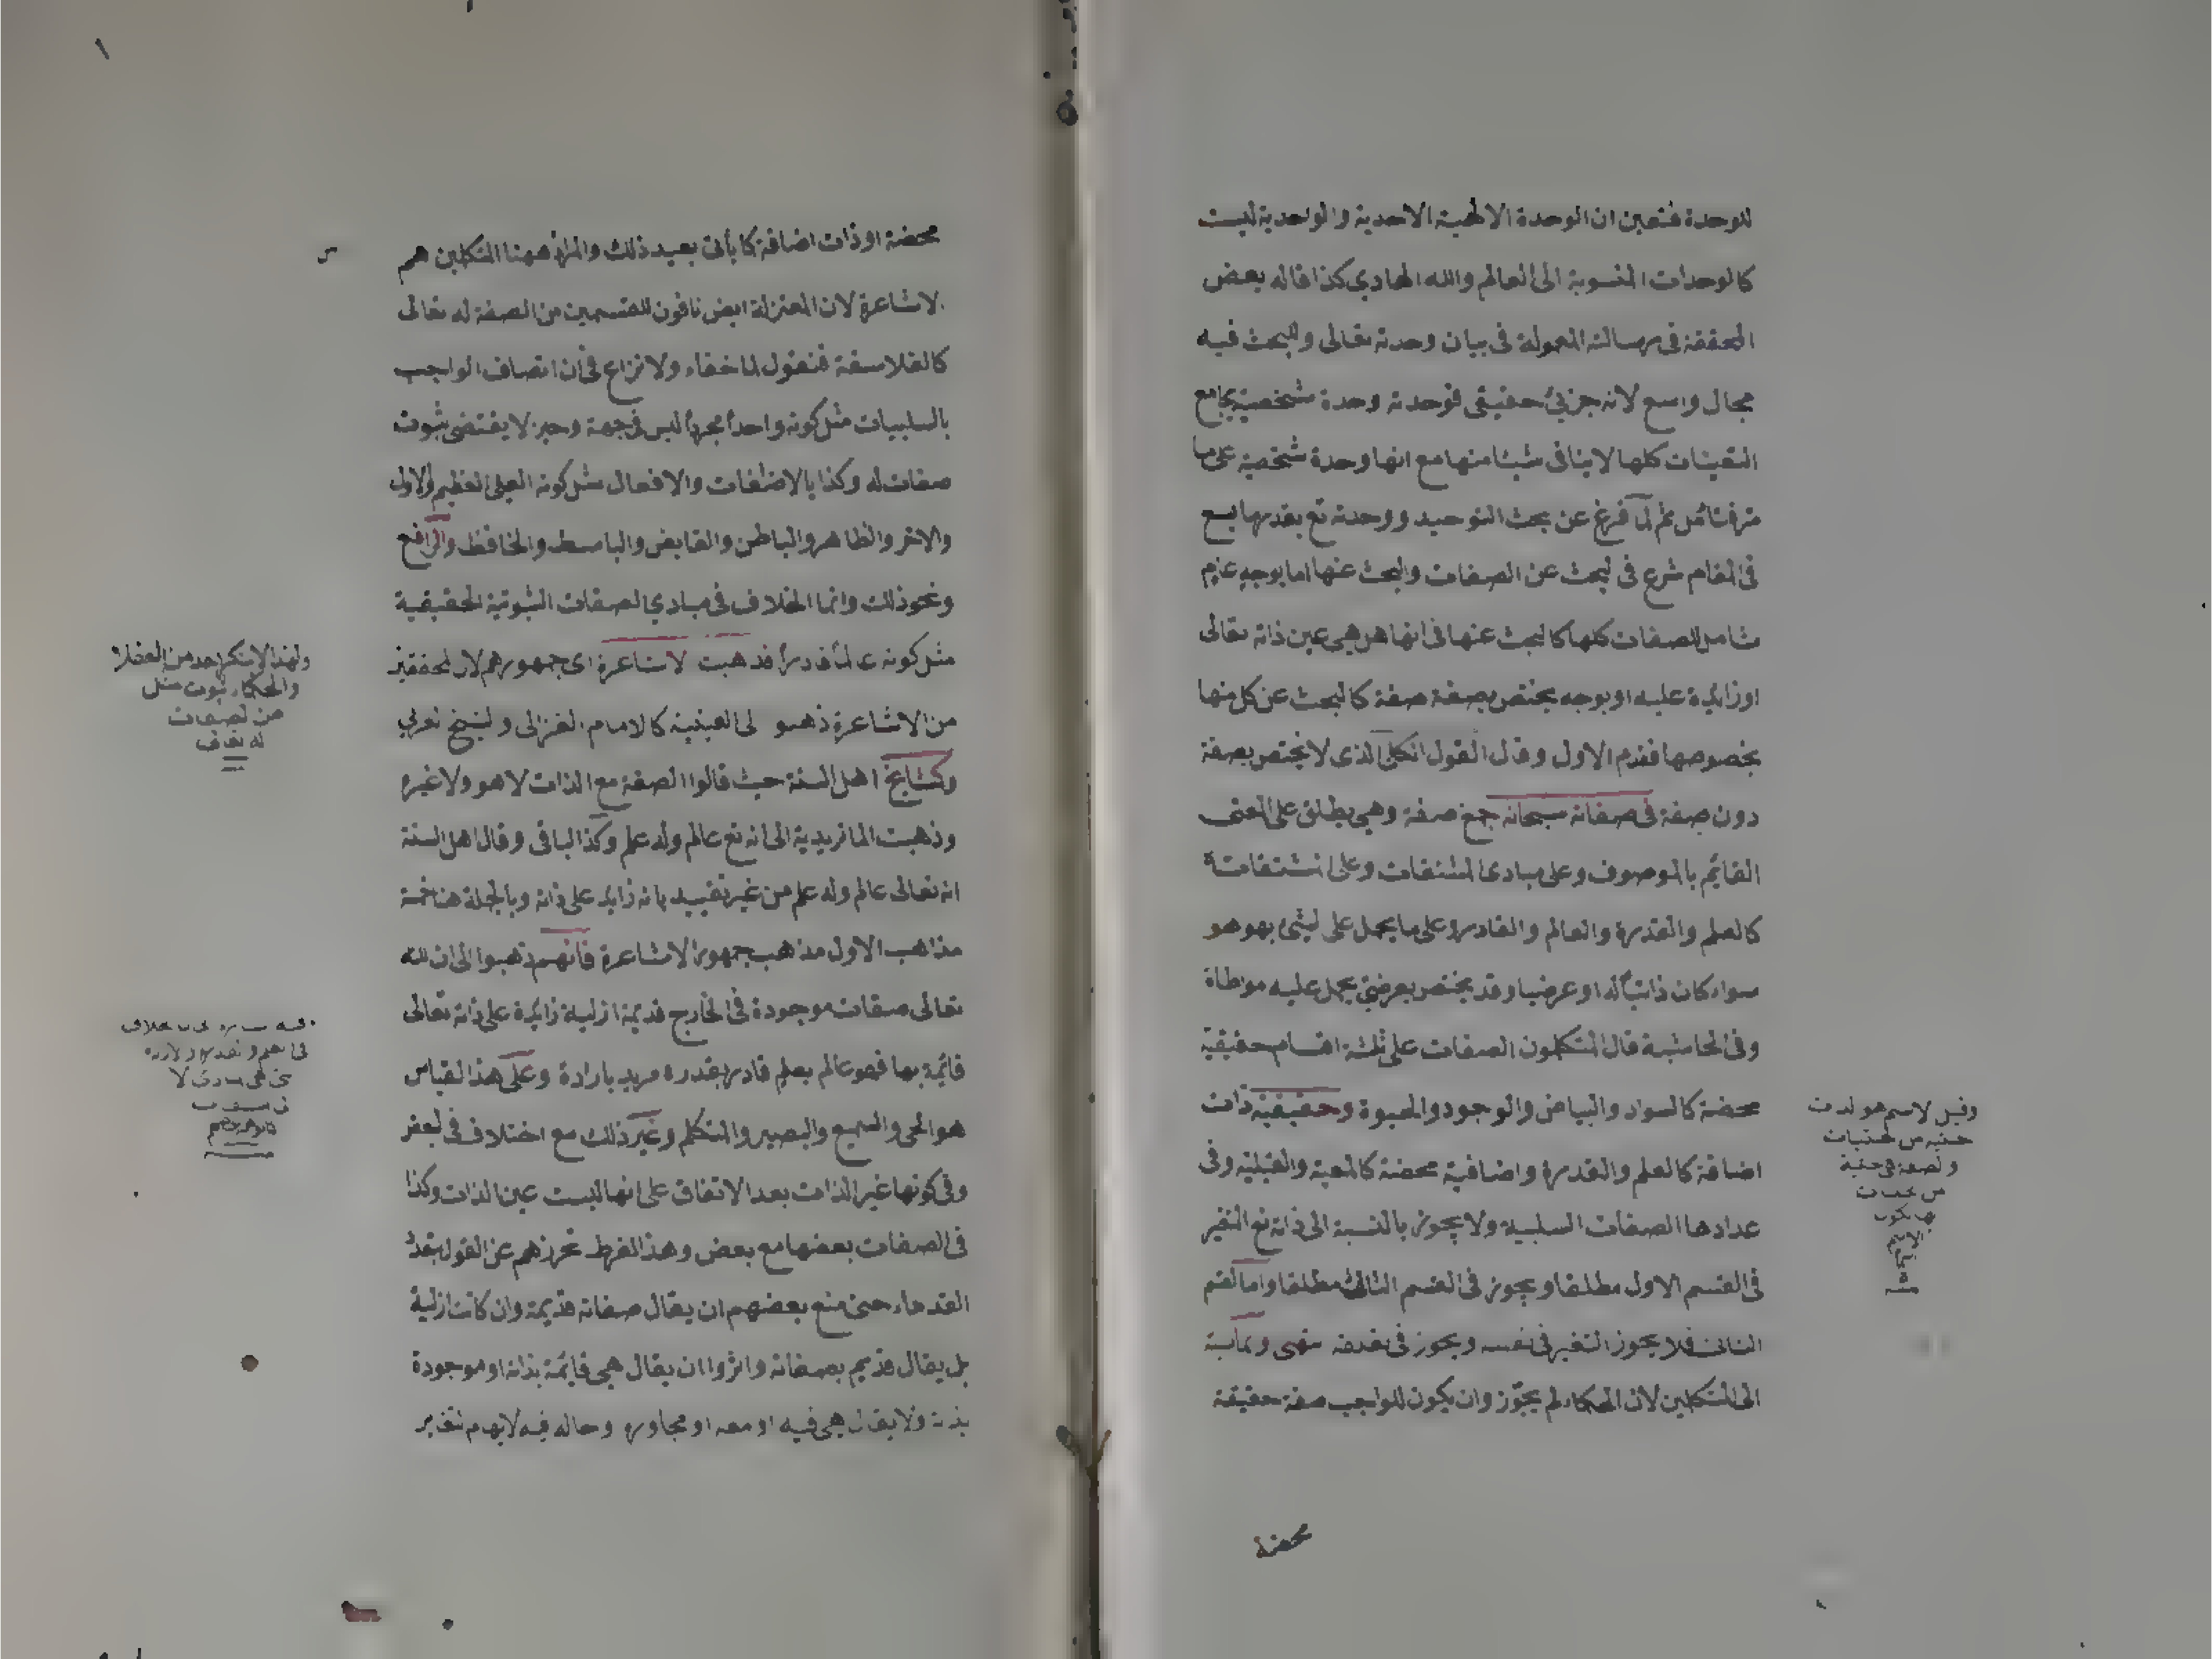 للوحدة فتعين ان الوحدة الالهية الاحدية والواحدية ليست
كالوحدات المنسوبة الى العالم والله الهادي كذا قاله بعض
المحققة في رسالته المعمولة في بيان وحدته تعالى وللبحث فيه
مجال واسع لانه جزئي حقيقي فوحدته وحدة شخصية يجامع
التعينات كلها لا ينافى شيئا منها مع انها وحدة شخصية على ما
مر فتأمل ثم لما فرغ عن بحث التوحيد ووحدته تع بقدر ما يسع
في المقام شرع في البحث عن الصفات والبحث عنها اما بوجه عام
شامل للصفات كلها كالبحث عنها في انها هل هي عين ذاته تعالى
او زائدة عليه او بوجه يختص بصفة صفة كالبحث عن كل منها
بخصوصها فقدم الاول وقال القول الكلى الذى لا يختص بصفة
دون صفة في صفاته سبحانه جمع صفة وهي يطلق على المعنى
القائم بالموصوف وعلى مبادى المشتقات وعلى المشتقات
كالعلم والقدرة والعالم والقادر وعلى ما يحمل على الشئ بهو هو
سواء كان ذاتيا له او عرضيا وقد يختص بعرضي يحمل عليه مواطاة
وفى الحاشية قال المتكلمون الصفات على ثلثة اقسام حقيقية
محضة كالسواد والبياض والوجود والحيوة وحقيقية ذات
اضافة كالعلم والقدرة واضافية محضة كالمعية والقبلية وفى
عدادها الصفات السلبية ولا يجوز بالنسبة الى ذاته تع التغير
فى القسم الاول مطلقا ويجوز فى القسم الثالث مطلقا واما القسم
الثانى فلا يجوز التغير فى نفسه ويجوز فى تعلقه انتهى
الى المتكلمين لان الحكماء لم يجوزوا ان يكون للواجب صفة حقيقة
وقيل الاسم هو الذات
والصفة هي
محضة
محضة او ذات اضافة كما يأتى بعيد ذلك والمراد ههنا المتكلمين هم
الاشاعرة لان المعتزلة ايض نافون للقسمين من الصفة له تعالى
كالفلاسفة فنقول لا خفاء ولا نزاع في ان اتصاف الواجب
بالسلبيات مثل كونه واحدا مجردا ليس في جهة وحيز لا يقتضى ثبوت
صفات له وكذا بالاضافات والافعال مثل كونه العلى العظيم والاول
والاخر والظاهر والباطن والقابض والباسط والحافظ والرافع
ونحو ذلك وانما الخلاف في مبادي الصفات الثبوتية الحقيقية
مثل كونه عالما قادرا فذهبت الاشاعرة اى جمهورهم لان المحققين
من الاشاعرة ذهبوا الى العينية كالامام الغزالى والشيخ العربي
وكمشايخ اهل السنة حيث قالوا الصفة مع الذات لا هو ولا غيره
وذهبت الماتريدية الى انه تع عالم وله علم وكذا الباقى وقال اهل السنة
انه تعالى عالم وله علم من غير تقييد بانه زايد على ذاته وبالجملة هنا خمسة
مذاهب الاول مذهب جمهور الاشاعرة فانهم ذهبوا الى ان لله
تعالى صفات موجودة فى الخارج قديمة ازلية زائدة على ذاته تعالى
قائمة بها فهو عالم بعلم قادر بقدرة مريد بارادة وعلى هذا القياس
هو الحي والسميع والبصير والمتكلم وغير ذلك مع اختلاف في البعض
وفى كونها غير الذات بعد الاتفاق على انها ليست عين الذات وكذا
فى الصفات بعضها مع بعض وهذا لفرط تحرزهم عن القول بتعدد
القدماء حتى منع بعضهم ان يقال صفاته قديمة وان كانت ازلية
بل يقال قديم بصفاته واثروا ان يقال هي قائمة بذاته او موجودة
بذاته ولا يقال هي فيه او معه او مجاورة وحاله فيه لايهام التغاير
ولهذا لا ينكر احد من العقلاء
والحكماء ثبوت مثل
من الصفات
له تعالى